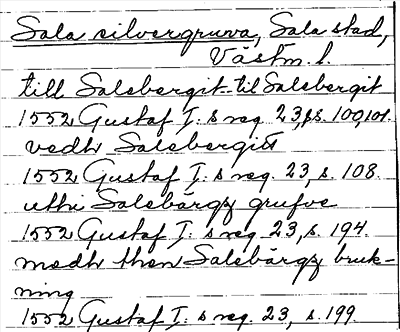 Sala silvergruva, Sala stad,
Västm. l.
till Salsbergit - til Salsbergit
1552 Gustaf I: s reg. 23, s. 100, 101.
vedh Salsbergitt
1552 Gustaf I: s reg. 23, s. 108.
uthi Salsbärgz grufve
1552 Gustaf I: s reg. 23, s. 194.
medh then Salsbärgz bruk-
ning
1552 Gustaf I: s reg. 23, s. 199.